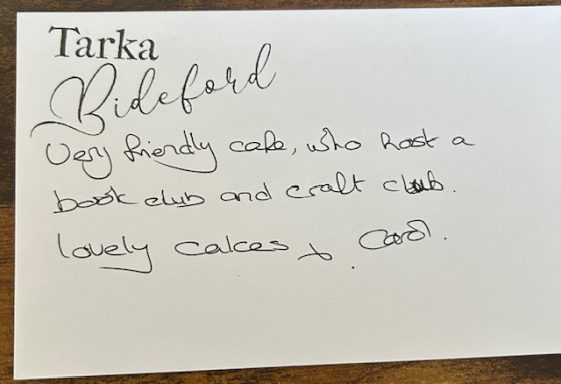 Tarka
Bideford
Very friendly cafe, who host a
book club and craft club.
lovely cakes + Carol.